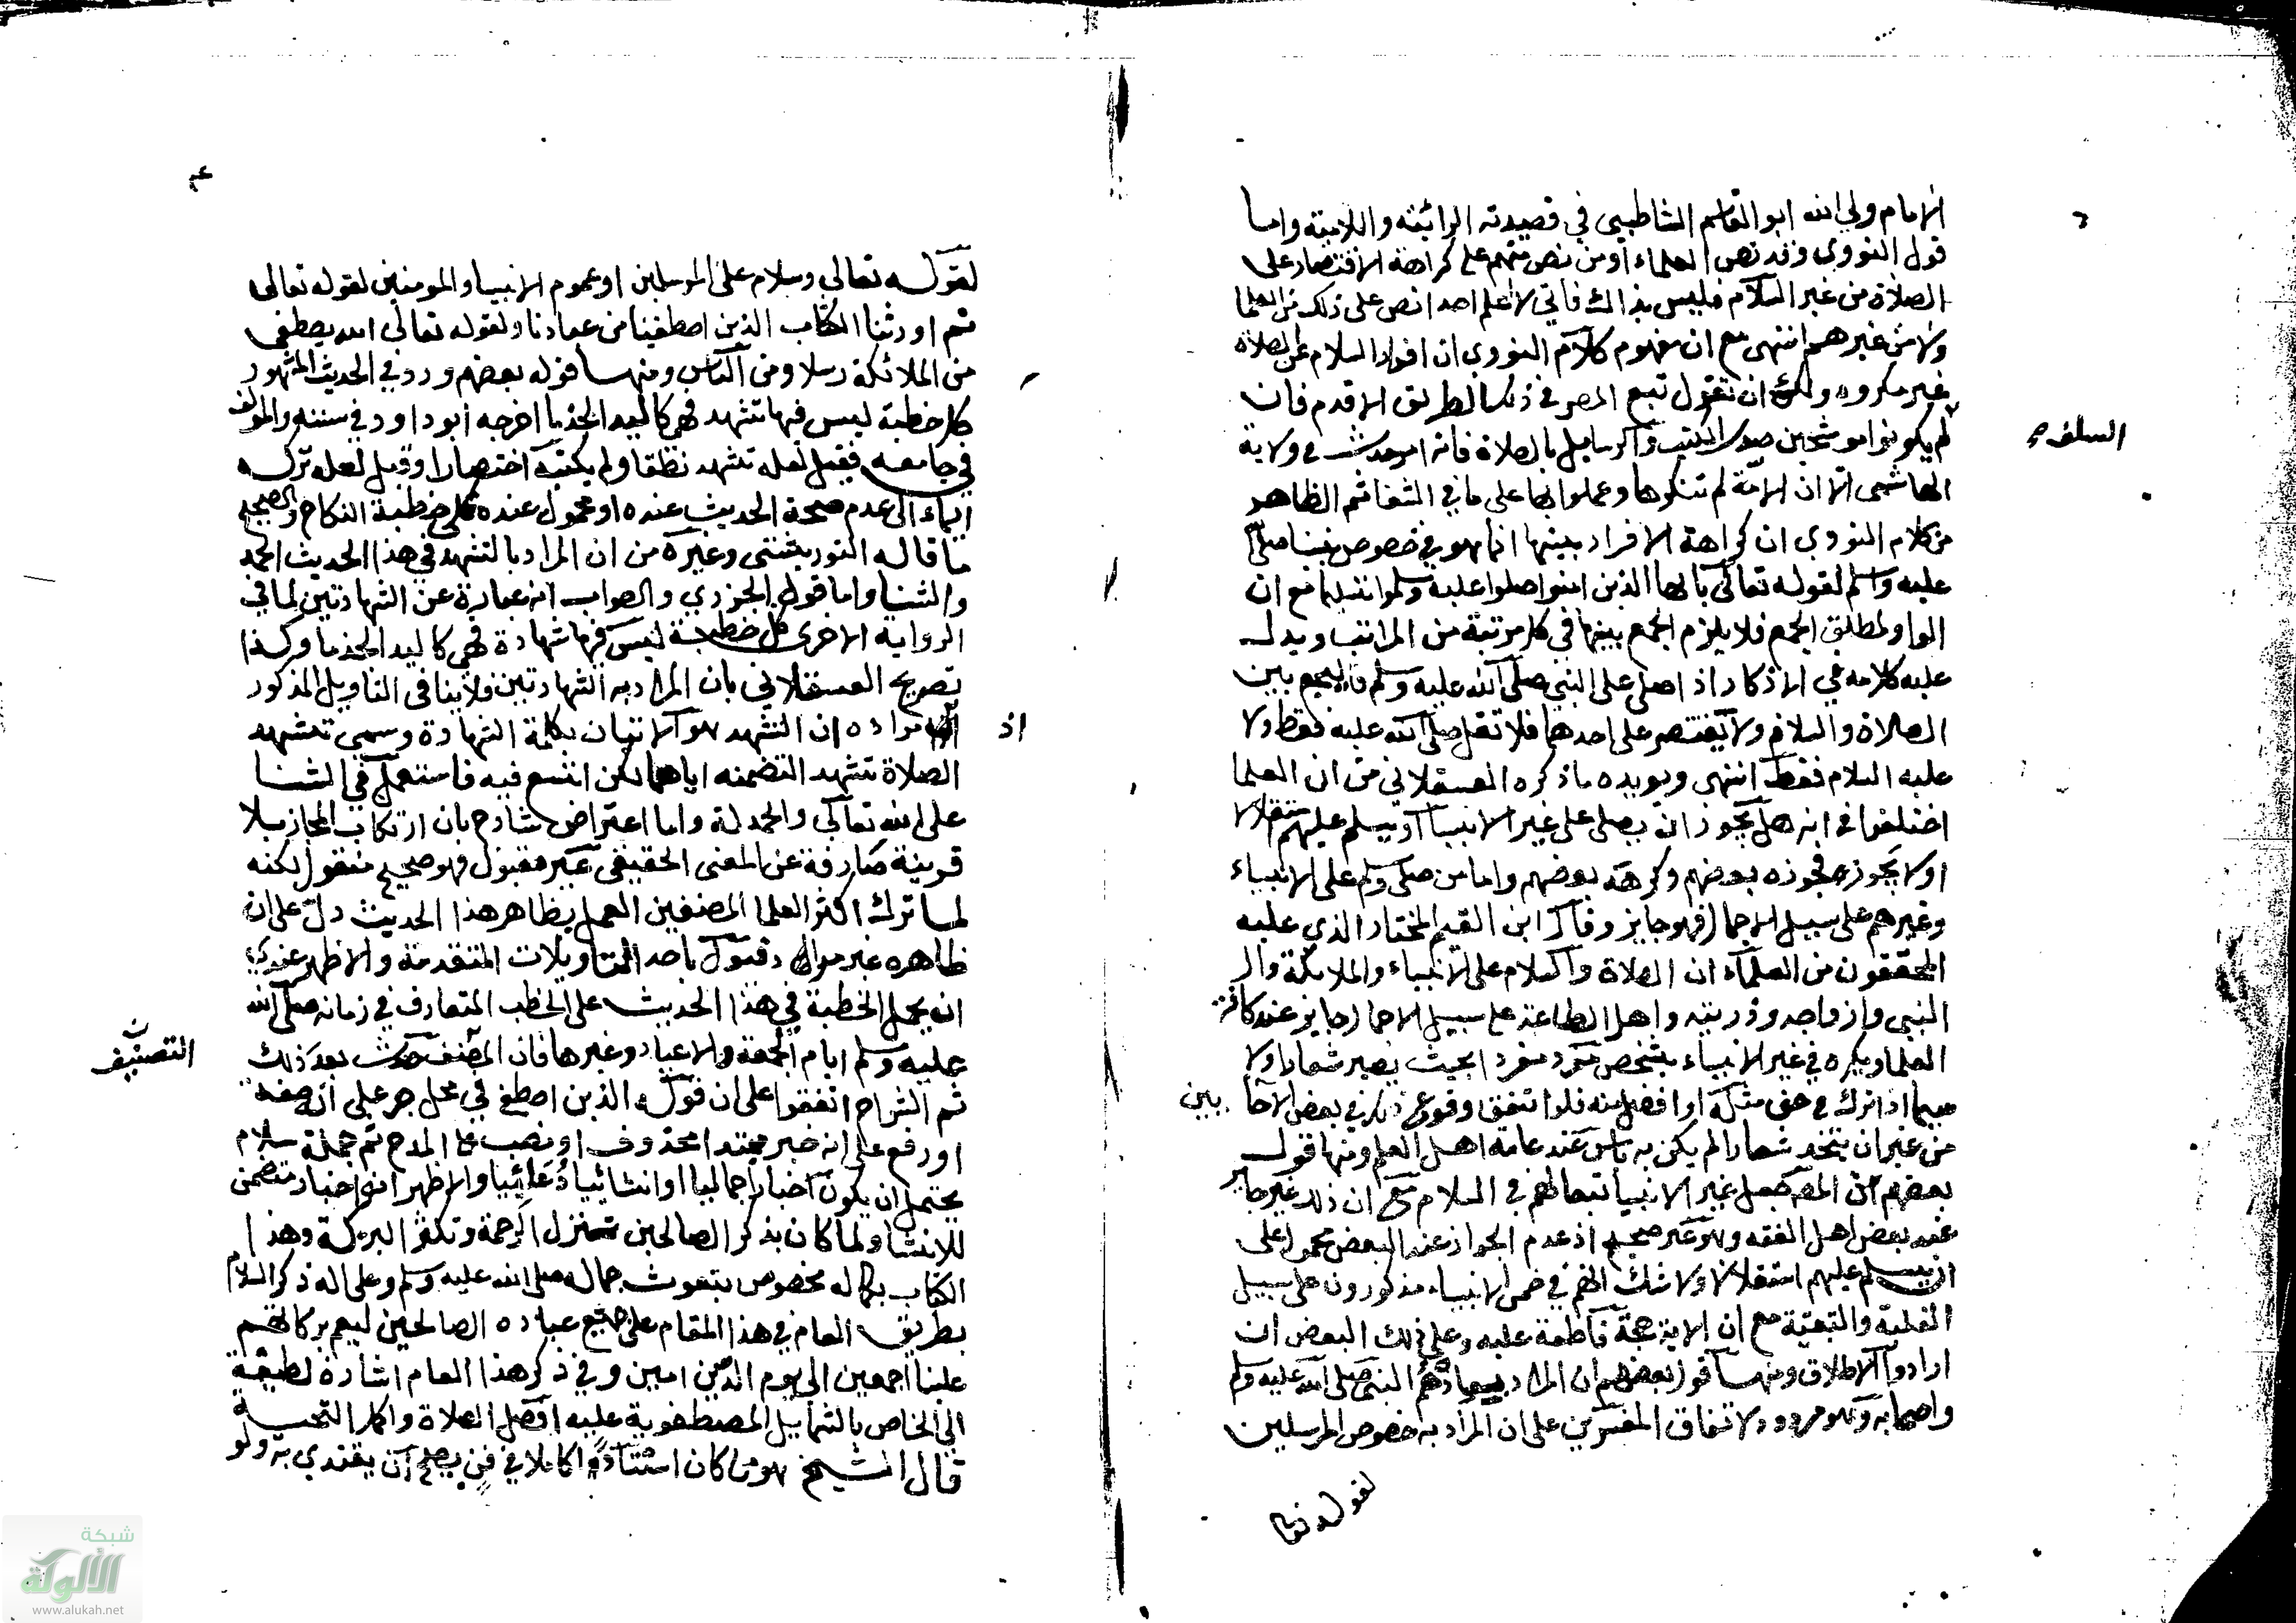 الامام ولي الله ابو القاسم الشاطبي في قصيدته الرائية واللامية واما
قول النووي وقد نص العلماء او من نص منهم على كراهة الاقتصار على
الصلاة من غير السلام فليس بذاك فاني لا اعلم احدا نص على ذلك من العلما
ولا من غيرهم انتهى مع ان مفهوم كلام النووي ان افراد السلام عن الصلاة
غير مكروه ولك ان تقول تبع المصر في ذلك الطريق الاقدم فان
السلف
لم يكونوا موشحين صدر الكتب والرسايل بالصلاة فانه امر حدث في ولاية
الهاشمي الا ان الامة لم تنكرها وعملوا بها على ما في الشفا ثم الظاهر
من كلام النووي ان كراهة الافراد بينهما انما هو في خصوص نبينا صلى الله
عليه وسلم لقوله تعالى يا ايها الذين امنوا صلوا عليه وسلموا تسليما مع ان
الواو لمطلق الجمع فلا يلزم الجمع بينهما في كل مرتبة من المراتب ويدل
عليه كلامه في الاذكار اذا صلى على النبي صلى الله عليه وسلم فليجمع بين
الصلاة والسلام ولا يقتصر على احدهما فلا تقل صلى الله عليه فقط ولا
عليه السلام فقط انتهى ويويده ما ذكره العسقلاني من ان العلما
اختلفوا في انه هل يجوز ان يصلى على غير الانبيا او يسلم عليهم استقلالا
او لا يجوز فجوزه بعضهم وكرهه بعضهم واما من صلى وسلم على الانبياء
وغيرهم على سبيل الاجمال فهو جايز وقال ابن القيم المختار الذي عليه
المحققون من العلماء ان الصلاة والسلام على الانبياء والملائكة وال
النبي وازواجه وذريته واهل الطاعة على سبيل الاجمال جايز عند كافة
العلما ويكره في غير الانبياء بشخص مفرد بحيث يصير شعارا ولا
سيما اذا ترك في حق مثله او افضل منه فلو اتفق وقوع ذلك في بعض الاحايين
من غير ان يتخذ شعارا لم يكن به باس عند عامة اهل العلم ومنها قول
بعضهم ان المصر جعل غير الانبيا تبعا لهم في السلام مع ان ذلك غير جايز
عند بعض اهل الفقه وهو غير صحيح اذ عدم الجواز عند البعض محمول على
ان يسلم عليهم استقلالا ولا شك انهم في ضمن الانبياء مذكورون على سبيل
الغلبة والتبعية مع ان الاية حجة قاطعة عليه وعلى ذلك البعض ان
ارادوا الاطلاق ومنها قول بعضهم ان المراد بعباده هم النبي صلى الله عليه وسلم
واصحابه وهو مردود لاتفاق المفسرين على ان المراد به خصوص المرسلين
لقوله تعا
لقوله تعالى وسلام على المرسلين او عموم الانبيا والمومنين لقوله تعالى
ثم اورثنا الكتاب الذين اصطفينا من عبادنا ولقوله تعالى الله يصطفي
من الملائكة رسلا ومن الناس ومنها قوله بعضهم ورد في الحديث المشهور
كل خطبة ليس فيها تشهد فهي كاليد الجذما اخرجه ابو داود في سننه والمولف
في جامعه فقيل لعله تشهد نطقا ولم يكتبه اختصارا وقيل لعله تركه
ايماء الى عدم صحة الحديث عنده او محمول عنده على خطبة النكاح والصحيح
ما قاله التوربشتي وغيره من ان المراد بالتشهد في هذا الحديث الحمد
والثنا واما قول الجزري والصواب انه عبارة عن الشهادتين لما في
الرواية الاخرى كل خطبة ليس فيها شهادة فهي كاليد الجذما وكذا
تصريح العسقلاني بان المراد به الشهادتين فلا ينافي التاويل المذكور
اذ مراده ان التشهد هو الاتيان بكلمة الشهادة وسمي تشهد
الصلاة تشهدا لتضمنه اياهما لكن اتسع فيه فاستعمل في الثنا
على الله تعالى والحمد له واما اعتراض شارح بان ارتكاب المجاز بلا
قرينة صارفة عن المعنى الحقيقي غير مقبول فهو صحيح منقول لكنه
لما ترك اكثر العلما المصنفين العمل بظاهر هذا الحديث دل على ان
ظاهره غير مراد فتؤل باحد التاويلات المتقدمة والاظهر عندي
ان يحمل الخطبة في هذا الحديث على الخطب المتعارف في زمانه صلى الله
عليه وسلم ايام الجمعة والاعياد وغيرها فان التصنيف حدث بعد ذلك
ثم الشراح اتفقوا على ان قوله الذين اصطفى في محل جر على انه صفة
او رفع على انه خبر مبتدا محذوف او نصب على المدح ثم جملة سلام
يحتمل ان يكون اخبارا اجماليا او انشائيا دعائيا والاظهر انه اخبار متضمن
للانشا ولما كان بذكر الصالحين تتنزل الرحمة وتكثر البركة وهذا
الكتاب بكماله مخصوص بنعوت جماله صلى الله عليه وسلم وعلى اله ذكر السلام
بطريق العام في هذا المقام على جميع عباده الصالحين ليعم بركاتهم
علينا اجمعين الى يوم الدين امين وفي ذكر هذا العام اشارة لطيفة
الى الخاص بالشمايل المصطفوية عليه افضل الصلاة واكمل التحية
قال الشيخ هو من كان استاذا كاملا في فن يصلح ان يقتدى به ولو
شبكة
الألوكة
www.alukah.net